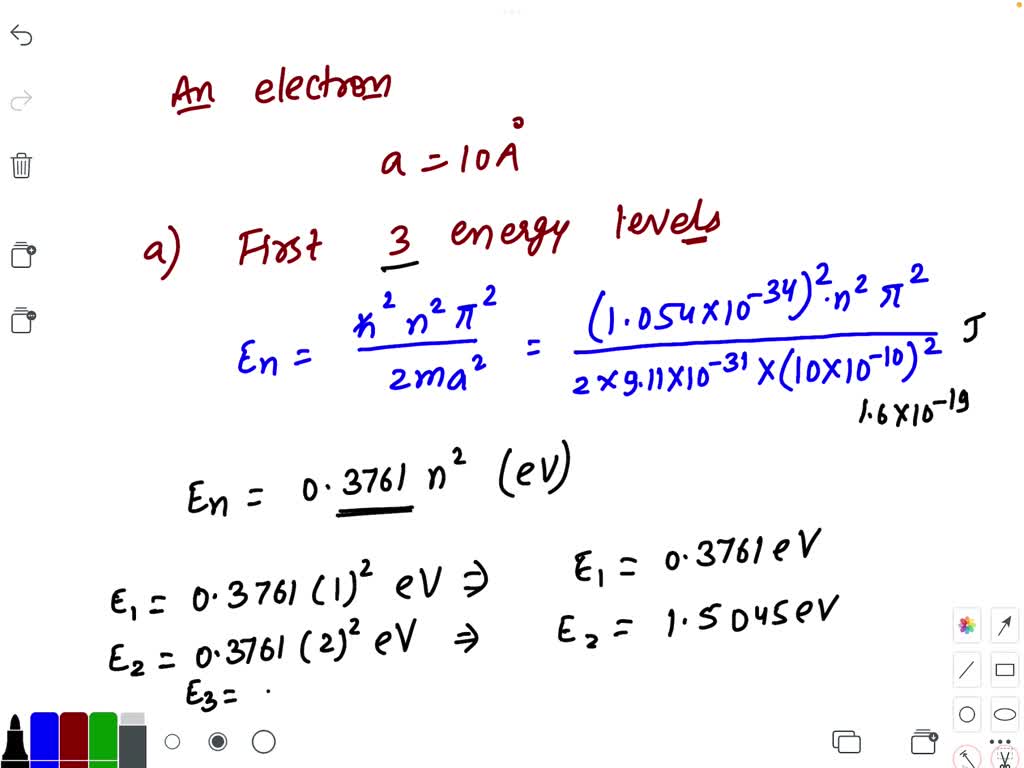 An electron
a = 10Å
a) First 3 energy levels
En = ħ² n² π² / 2ma² = (1.054×10⁻³⁴)² · n² π² / 2×9.11×10⁻³¹×(10×10⁻¹⁰)² J
1.6×10⁻¹⁹
En = 0.3761 n² (eV)
E₁ = 0.3761 (1)² eV ⇒ E₁ = 0.3761 eV
E₂ = 0.3761 (2)² eV ⇒ E₂ = 1.5045 eV
E₃ = .